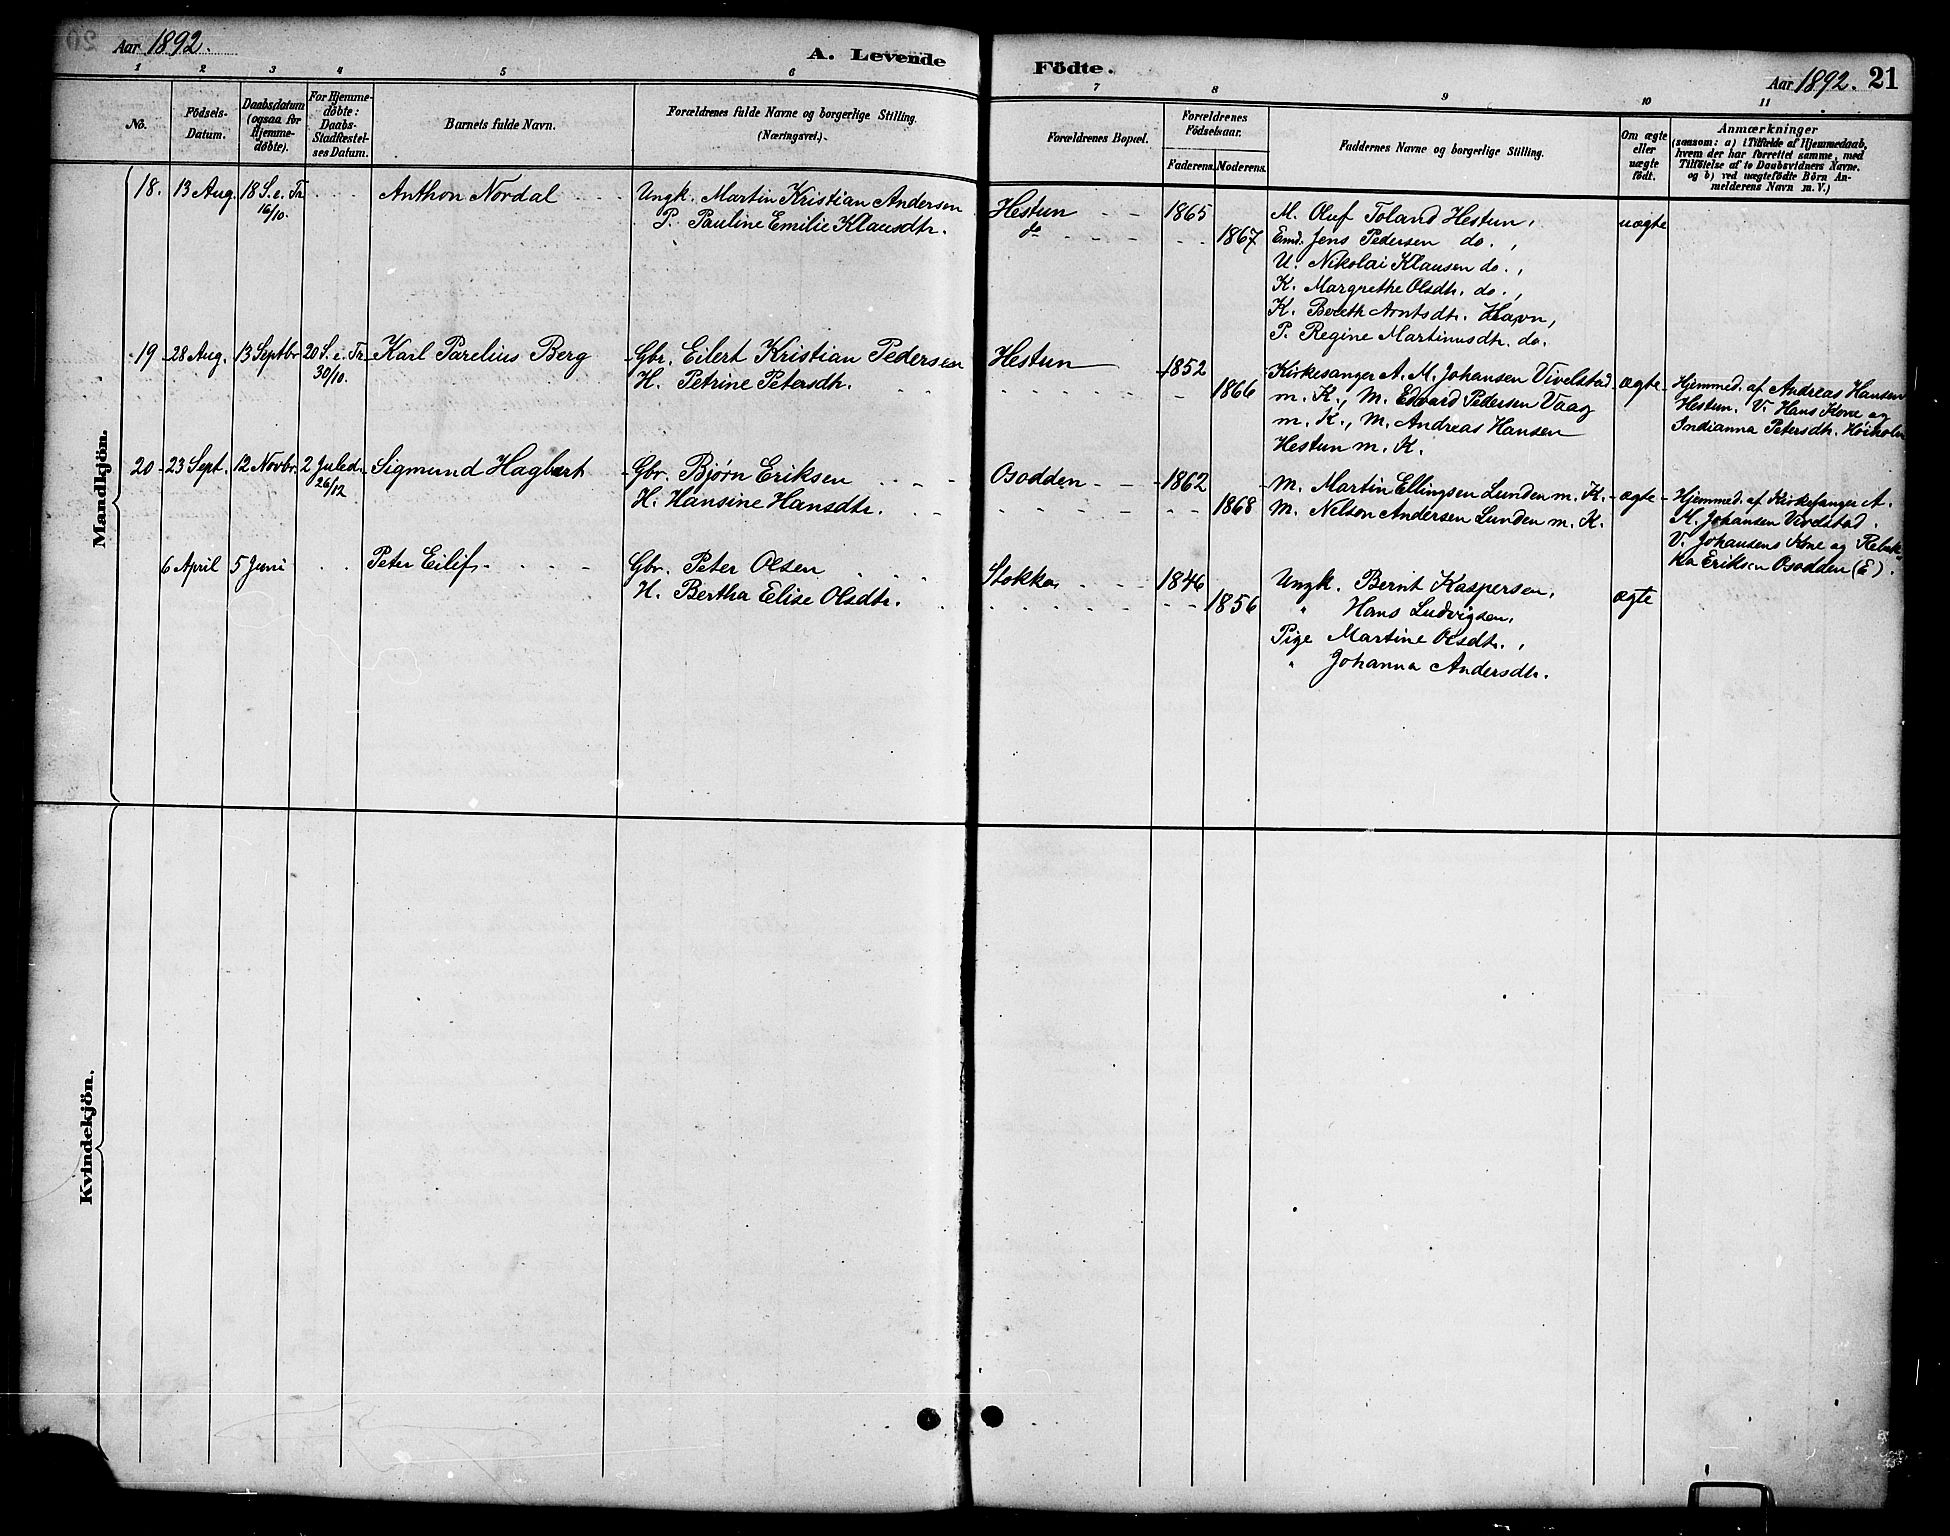 Aar 1892.
A. Levende Födte.
Aar 1892. 21
1 2 3 4 5 6 7 8 9 10 11
No.
Födsels-
Datum.
Daabsdatum
(ogsaa for
Hjemme-
døbte).
For Hjemme-
døbte:
Daabs-
Stadfæstel-
ses Datum.
Barnets fulde Navn.
Forældrenes fulde Navne og borgerlige Stilling.
(Næringsvei).
Forældrenes Bopæl.
Forældrenes
Födselsaar.
Faderens. Moderens.
Faddernes Navne og borgerlige Stilling.
Om ægte
eller
uægte
födt.
Anmærkninger
(saasom: a) i Tilfælde af Hjemmedaab,
hvem der har forrettet samme, med
Tilföielse af to Daabsvidners Navne.
og b) ved uægtefödte Börn An-
melderens Navn m. V.)
Mandkjön.
18. 13 Aug. 18 S. e. Tr.
16/10.
Anthon Nordal
Ungk. Martin Kristian Andersen
P. Pauline Emilie Klausdtr.
Hestun
do
1865
1867
M. Oluf Toland Hestun,
Emd. Jens Pedersen do.,
U. Nikolai Klausen do.,
K. Margrethe Olsdtr. do.,
K. Bereth Arntsdtr. Havn,
P. Regine Martinusdtr. do.
uægte
19 28 Aug. 13 Septbr 20 S. e. Tr.
30/10.
Karl Parelius Berg
Gbr. Eilert Kristian Pedersen
H. Petrine Petersdtr.
Hestun
1852
1866
Kirkesanger A. M. Johansen Vivelstad
m. K., M. Edvard Pedersen Vaag
m. K., M. Andreas Hansen
Hestun m. K.
ægte
Hjemmed. af Andreas Hansen
Hestun. V. Hans Kone og
Indianna Petersdtr. Høiholm
20 23 Sept. 12 Novbr. 2 Juled.
26/12
Sigmund Hagbart
Gbr. Bjørn Eriksen
H. Hansine Hansdtr.
Osodden
1862
1868
M. Martin Ellingsen Lunden m. K.
M. Nelson Andersen Lunden m. K.
ægte
Hjemmed. af Kirkesanger A.
M. Johansen Vivelstad.
V. Johansens Kone og Rebek-
ka Eriksen Osodden (E).
6 April 5 Juni
Peter Eilif
Gbr. Peter Olsen
H. Bertha Elise Olsdtr.
Stokka
1846
1856
Ungk. Bernt Kaspersen,
" Hans Ludvigsen,
Pige Martine Olsdtr.,
" Johanna Andersdtr.
ægte
Kvindekjön.